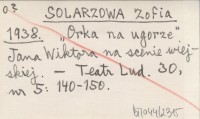 SOLARZOWA Zofia
1938. "Orka na ugorze"
Jana Wiktora na scenie wiej-
skiej. – Teatr Lud. 30,
nr 5: 140-150.